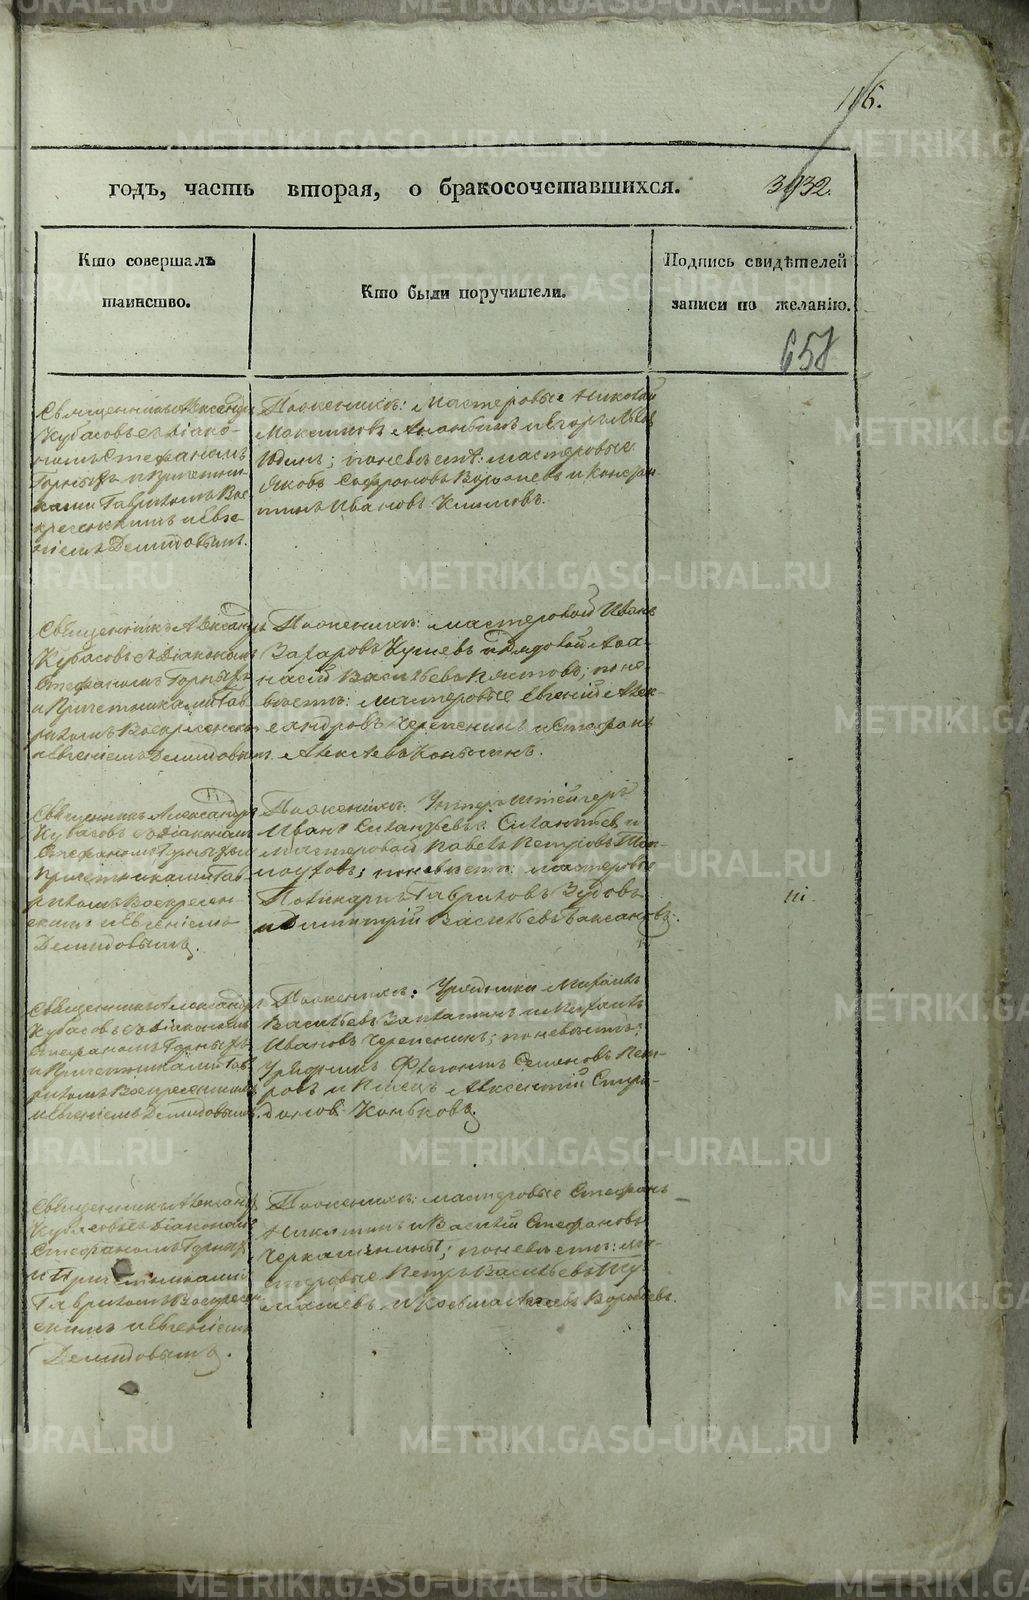 116.
годъ, часть вторая, о бракосочетавшихся.
3932.
Кто совершалъ
таинство.
Кто были поручители.
Подпись свидѣтелей
записи по желанію.
658
Священникъ Александръ
Кубасовъ съ Діако-
номъ Стефаномъ
Горныхъ и Причетни-
ками Гавриломъ Вос-
кресенскимъ и Евге-
ніемъ Демидовымъ.
По женихѣ: мастеровые Николай
Максимовъ и Егоръ
Юдинъ; по невѣстѣ: мастеровые
Яковъ Софроновъ Воробьевъ и Констан-
тинъ Ивановъ Климовъ.
Священникъ Александръ
Кубасовъ съ Діакономъ
Стефаномъ Горныхъ
и Причетниками Гав-
риломъ Воскресенскимъ
и Евгеніемъ Демидовымъ.
По женихѣ: мастеровой Иванъ
Захаровъ и рядовой Афа-
насій Васильевъ; по не-
вѣстѣ: мастеровые Евгеній Алек-
сандровъ Черепенинъ и Стефанъ
Алексѣевъ
Священникъ Александръ
Кубасовъ съ Діакономъ
Стефаномъ Горныхъ и
Причетниками Гав-
риломъ Воскресен-
скимъ и Евгеніемъ
Демидовымъ.
По женихѣ: Унтеръ Штейгеръ
Иванъ Силантьевъ и
Мастеровой Павелъ Петровъ
по невѣстѣ: мастеровые
Поликарпъ Гавриловъ Зубовъ
и Димитрій Васильевъ
Священникъ Александръ
Кубасовъ съ Діакономъ
Стефаномъ Горныхъ
и Причетниками Гав-
риломъ Воскресенскимъ
и Евгеніемъ Демидовымъ.
По женихѣ: Урядники Михаилъ
Васильевъ и Михаилъ
Ивановъ Черепенинъ; по невѣстѣ:
Урядникъ Семеновъ Пет-
ровъ и Писецъ Авксентій Спири-
доновъ Коньковъ.
Священникъ Александръ
Кубасовъ съ Діакономъ
Стефаномъ Горныхъ
и Причетниками
Гавриломъ Воскресен-
скимъ и Евгеніемъ
Демидовымъ.
По женихѣ: мастеровые Стефанъ
Никитинъ и Василій Стефановъ
по невѣстѣ: ма-
стеровые Петръ Васильевъ
и Козьма Воробьевъ.
METRIKI.GASO-URAL.RU